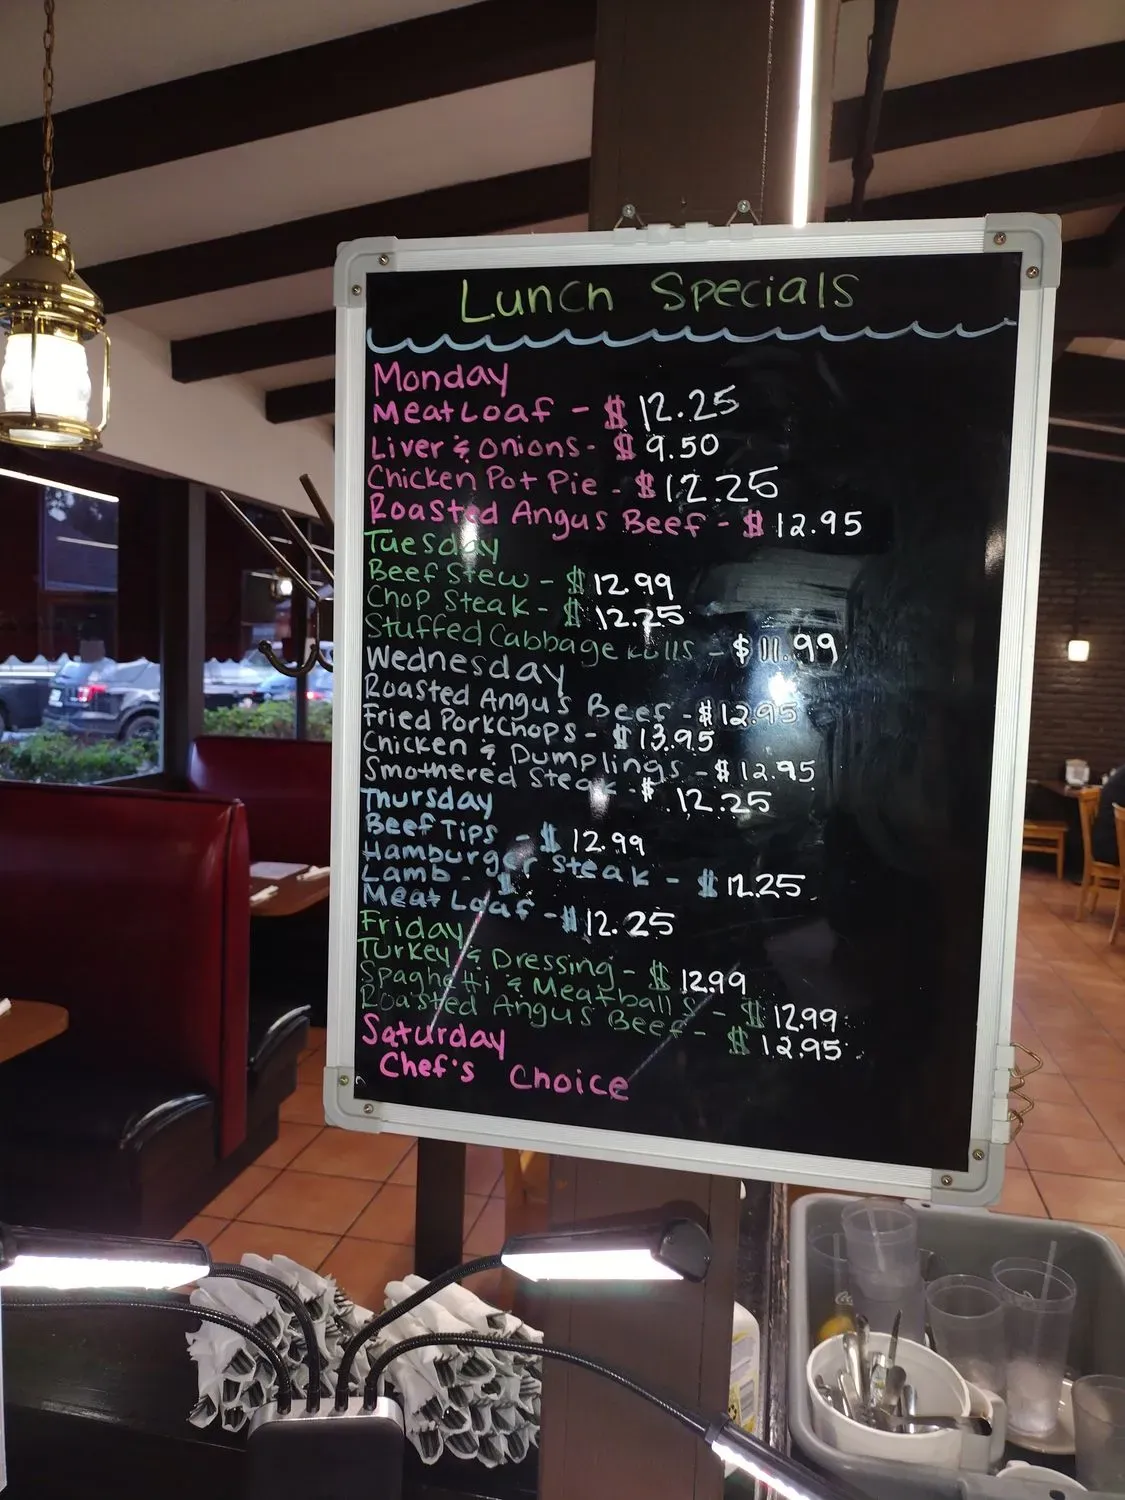 Lunch Specials
Monday
Meat Loaf - $ 12.25
Liver & Onions - $ 9.50
Chicken Pot Pie - $ 12.25
Roasted Angus Beef - $ 12.95
Tuesday
Beef Stew - $ 12.99
Chop Steak - $ 12.25
Stuffed Cabbage Rolls - $ 11.99
Wednesday
Roasted Angus Beef - $ 12.95
Fried PorkChops - $ 13.95
Chicken & Dumplings - $ 12.95
Smothered Steak - $ 12.25
Thursday
Beef Tips - $ 12.99
Hamburger Steak - $ 12.25
Lamb - $
Meat Loaf - $ 12.25
Friday
Turkey & Dressing - $ 12.99
Spaghetti & Meatballs - $ 12.99
Roasted Angus Beef - $ 12.95
Saturday
Chef's Choice